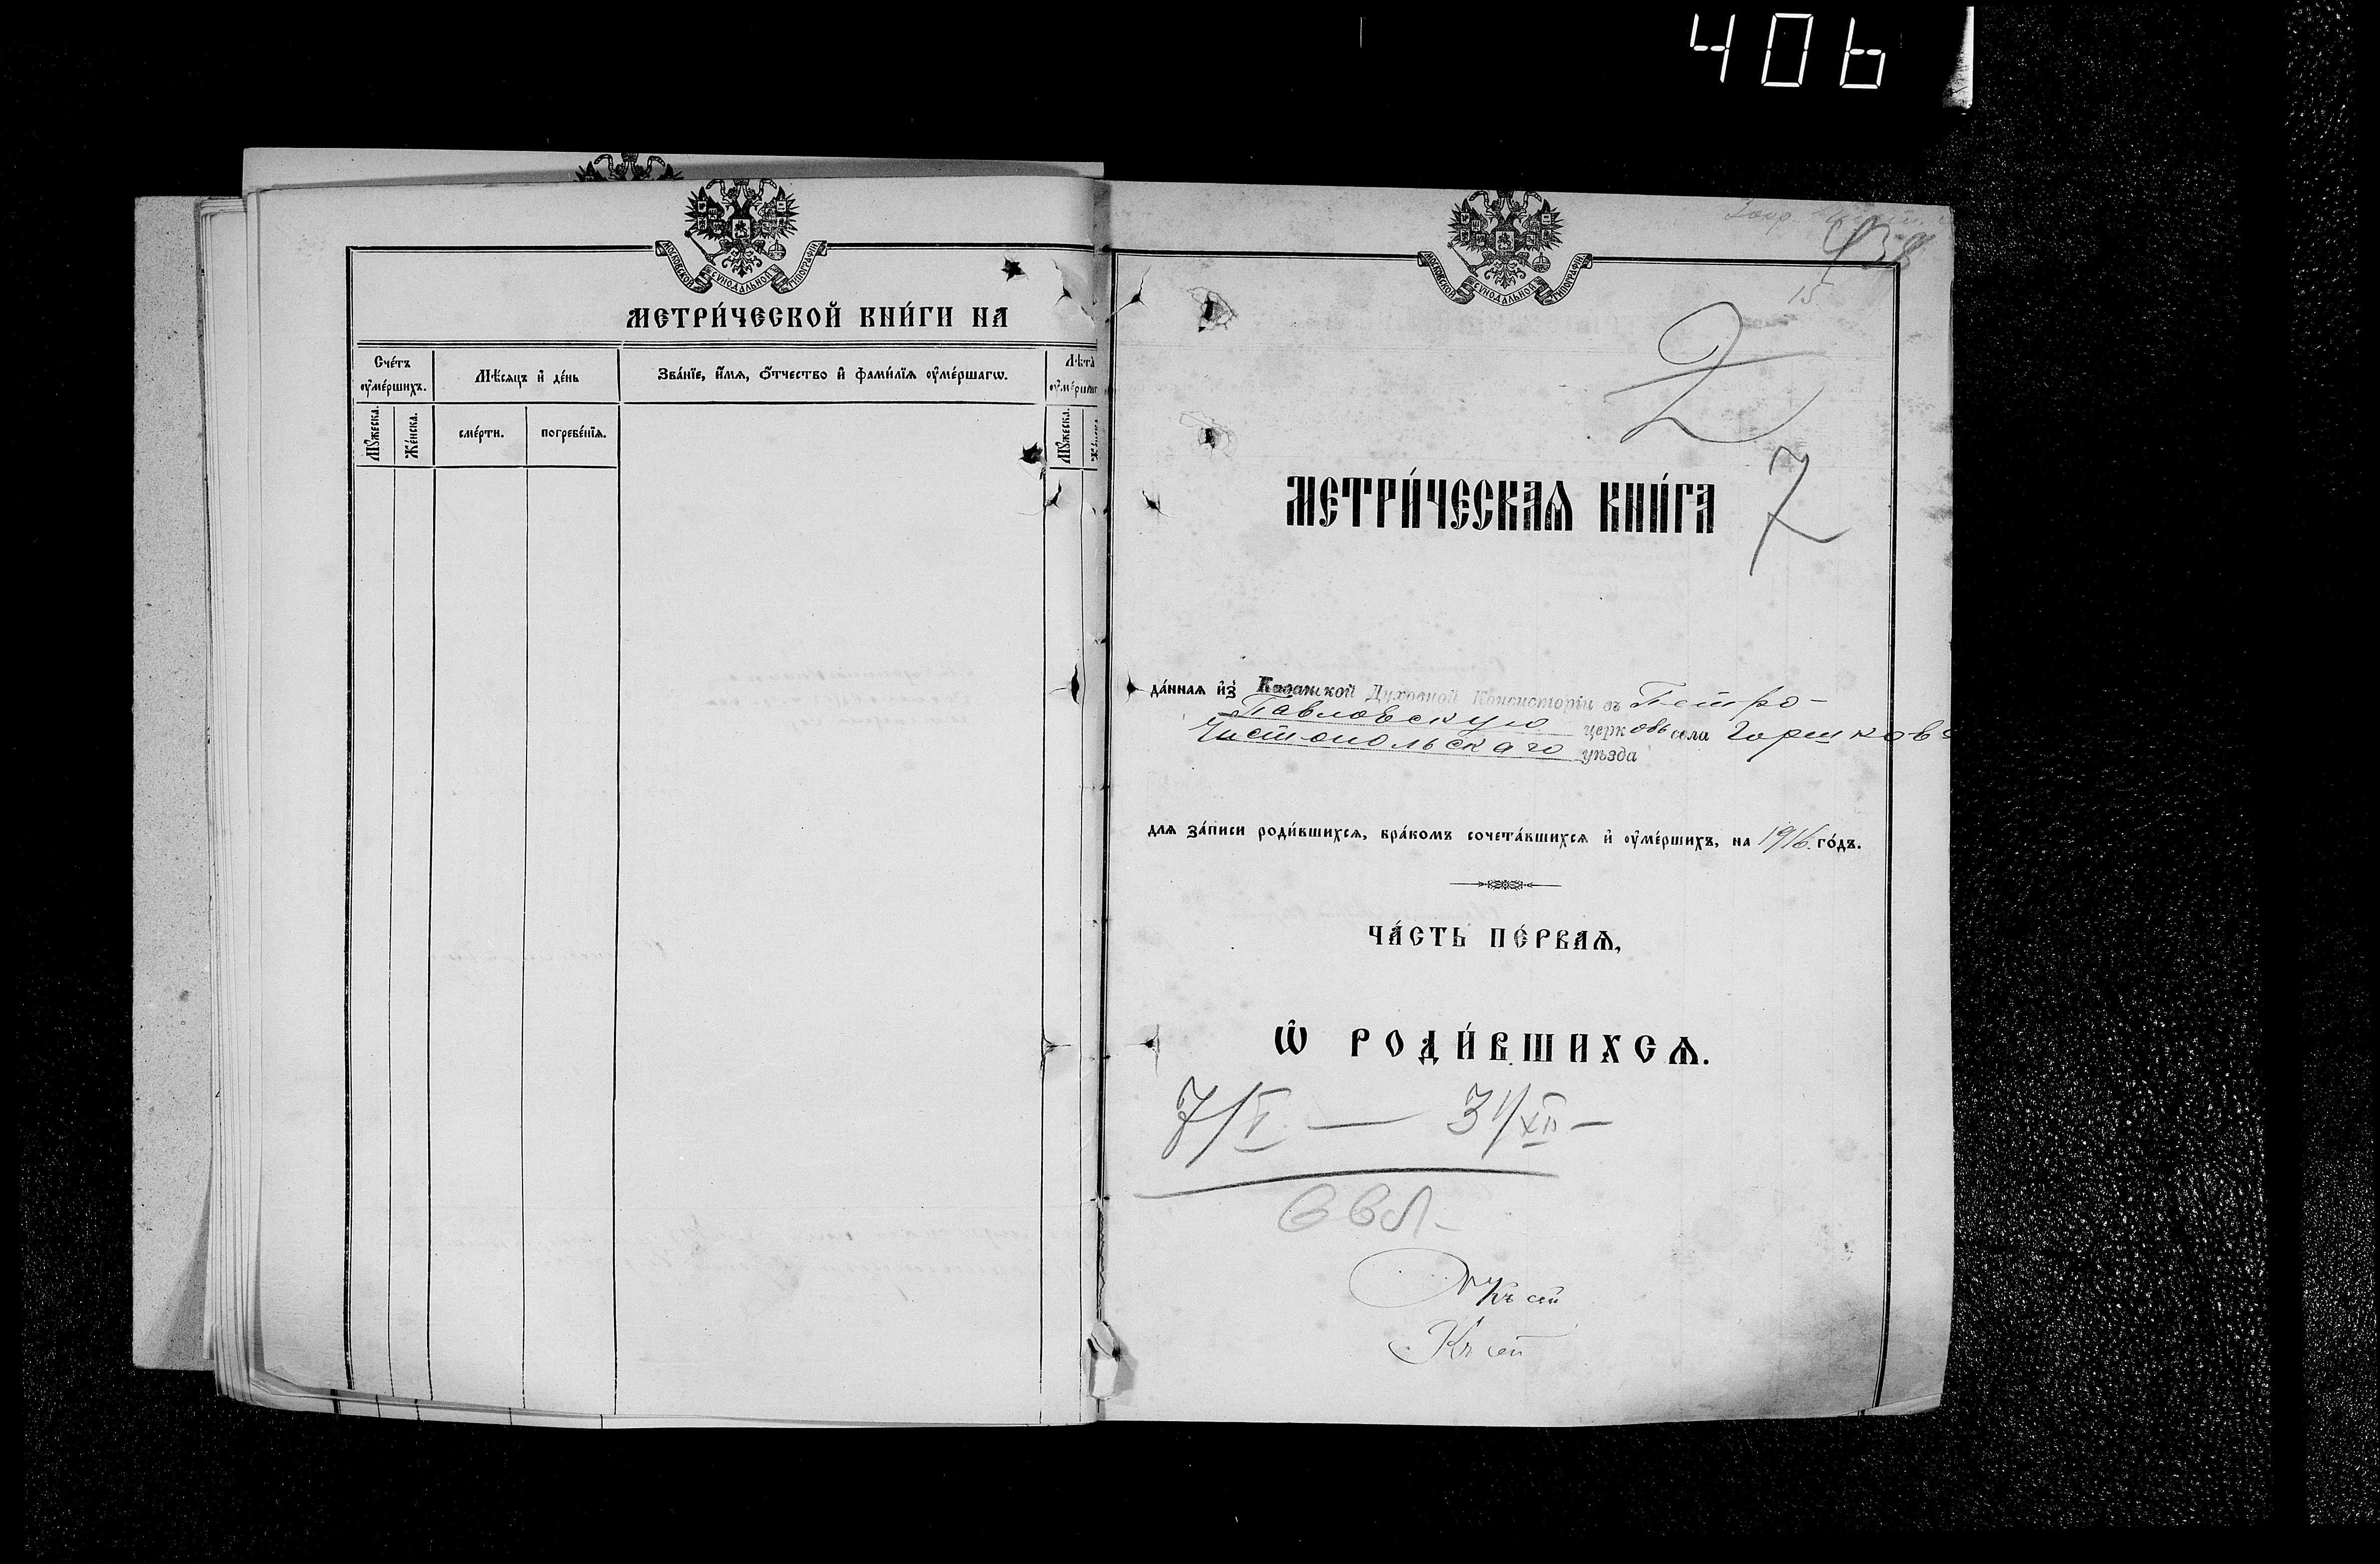 406
МОСКОВСКОЙ СѴНОДАЛЬНОЙ ТИПОГРАФІИ
МЕТРИ́ЧЕСКОЙ КНИ́ГИ НА
Сче́тъ ᲂу҆ме́ршихъ.
Мѣ́сяцъ и҆ де́нь
Зва́нїе, и҆́мѧ, ѻ҆́тчество и҆ фами́лїѧ ᲂу҆ме́ршагѡ.
Лѣ́та
Мꙋ́жеска.
Же́нска.
сме́рти.
погребе́нїѧ.
Мꙋ́жеска.
МОСКОВСКОЙ СѴНОДАЛЬНОЙ ТИПОГРАФІИ
15
2
МЕТРИ́ЧЕСКАѦ КНИ́ГА
7
да́ннаѧ и҆з̾ Казанской Духовной Консисторіи въ Петро-
Павловскую церковь села Горшков
Чистопольскаго уѣзда
длѧ за́писи роди́вшихсѧ, бра́комъ сочета́вшихсѧ и҆ ᲂу҆ме́ршихъ, на 1916 го́дъ.
ЧА́СТЬ ПЕ́РВАѦ,
Ѡ҆ РОДИ́ВШИХСѦ.
7/I — 31/XII —